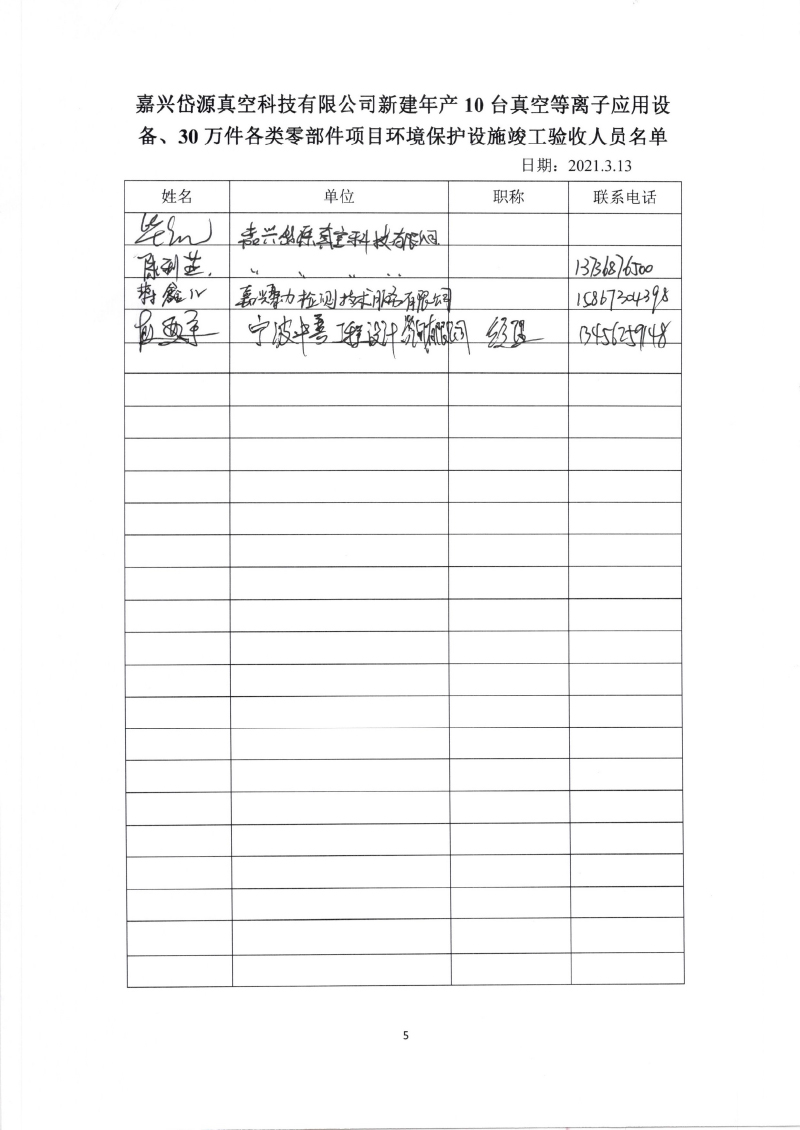 嘉兴岱源真空科技有限公司新建年产 10 台真空等离子应用设
备、30 万件各类零部件项目环境保护设施竣工验收人员名单
日期：2021.3.13
姓名 单位 职称 联系电话
嘉兴岱源真空科技有限公司
陈利芝 〃 〃 〃 〃 13736876500
嘉兴聚力检测技术服务有限公司 15867304398
宁波中善工程设计咨询有限公司 经理 13456259148
5